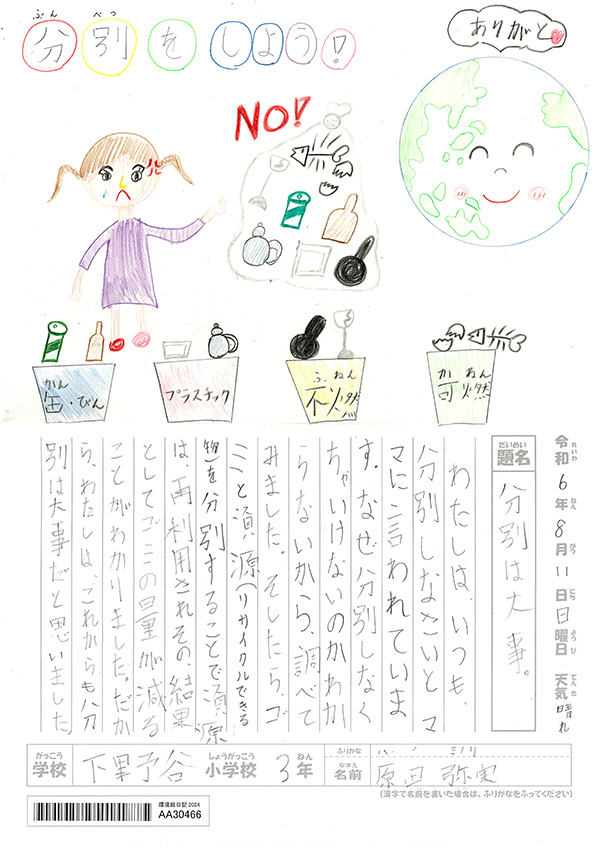 分別をしよう!
ぶん べつ
ありがと
NO!
かん
缶・びん
プラスチック
ふねん
不燃
かねん
可燃
令和6年8月11日日曜日 天気晴れ
れいわ ねん がつ にち ようび てんき
だいめい
題名
分別は大事。
わたしは、いつも、
分別しなさいと マ
マに言われていま
す。なぜ分別しなく
ちゃいけないのかわか
らないから、調べて
みました。そしたら、ゴ
ミと資源(リサイクルできる
物)を分別することで資源
は、再利用されその、結果
としてゴミの量が減る
ことがわかりました。だか
ら、わたしは、これからも分
別は大事だと思いました
がっこう
学校
下里予谷
しょうがっこう
小学校
3年
ねん
ふりがな
なまえ
名前
原田 弥実
(漢字で名前を書いた場合は、ふりがなをふってください)
環境絵日記 2024
AA30466